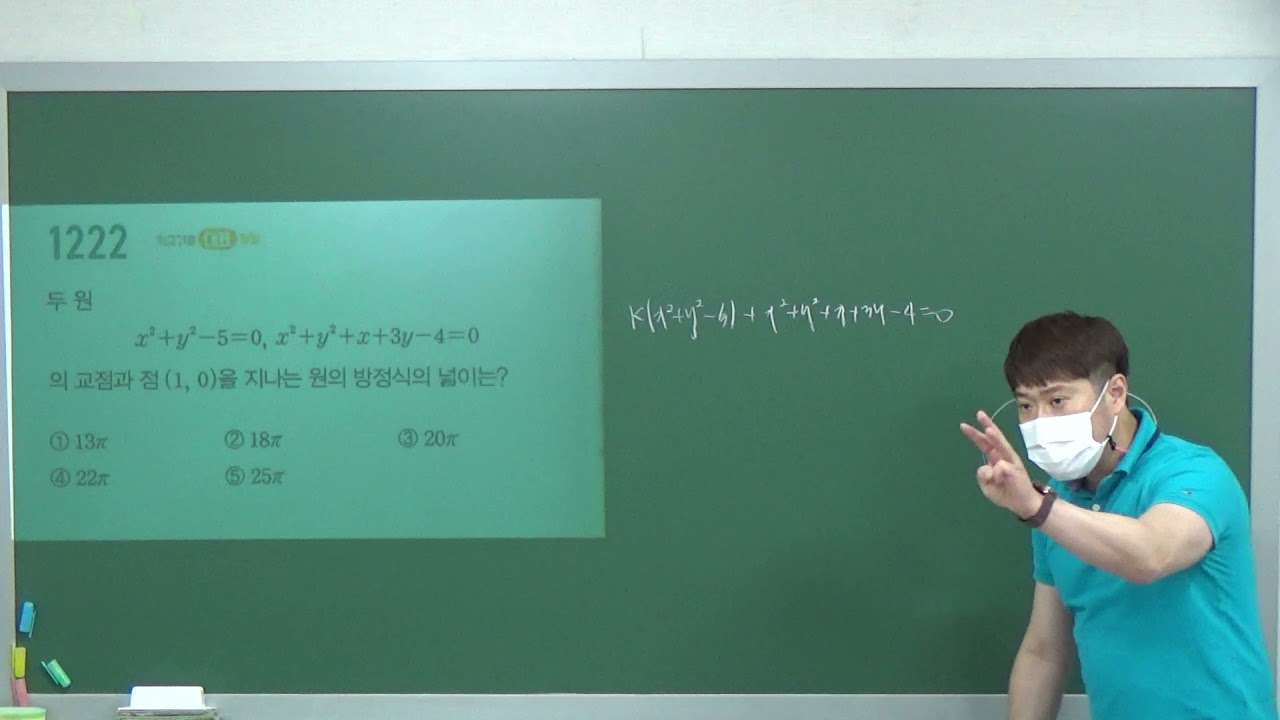 1222
두 원
x²+y²-5=0, x²+y²+x+3y-4=0
의 교점과 점 (1, 0)을 지나는 원의 방정식의 넓이는?
① 13π ② 18π ③ 20π
④ 22π ⑤ 25π
K(x²+y²-5)+x²+y²+x+3y-4=0